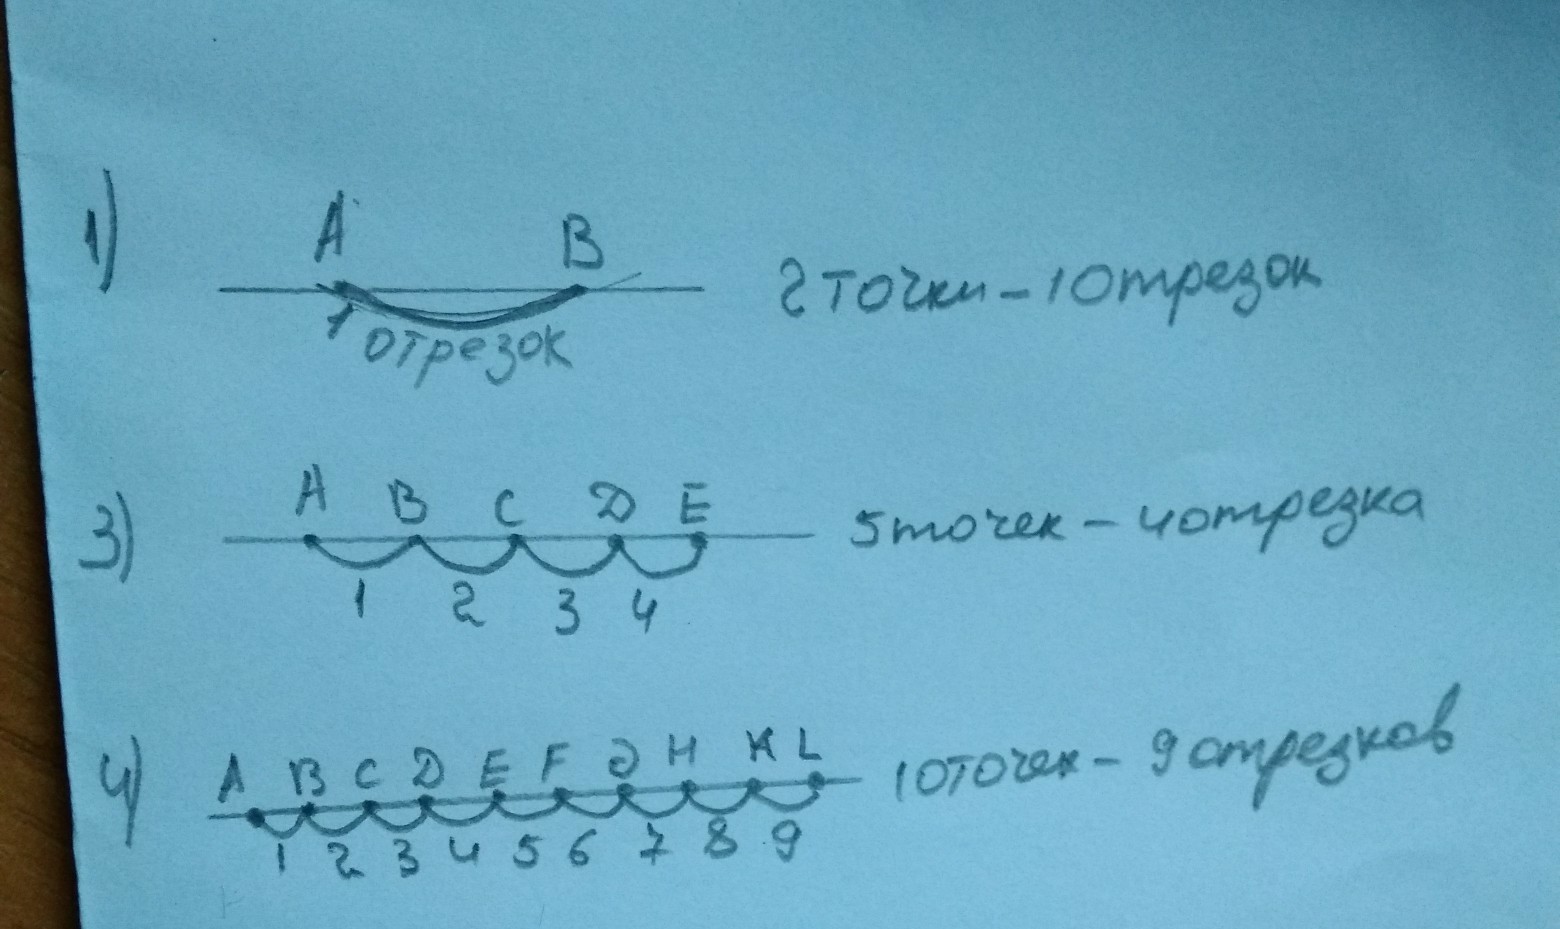 1)
A B
2 точки - 1 отрезок
1 отрезок
3)
A B C D E
5 точек - 4 отрезка
1 2 3 4
4)
A B C D E F H K L
10 точек - 9 отрезков
1 2 3 4 5 6 7 8 9